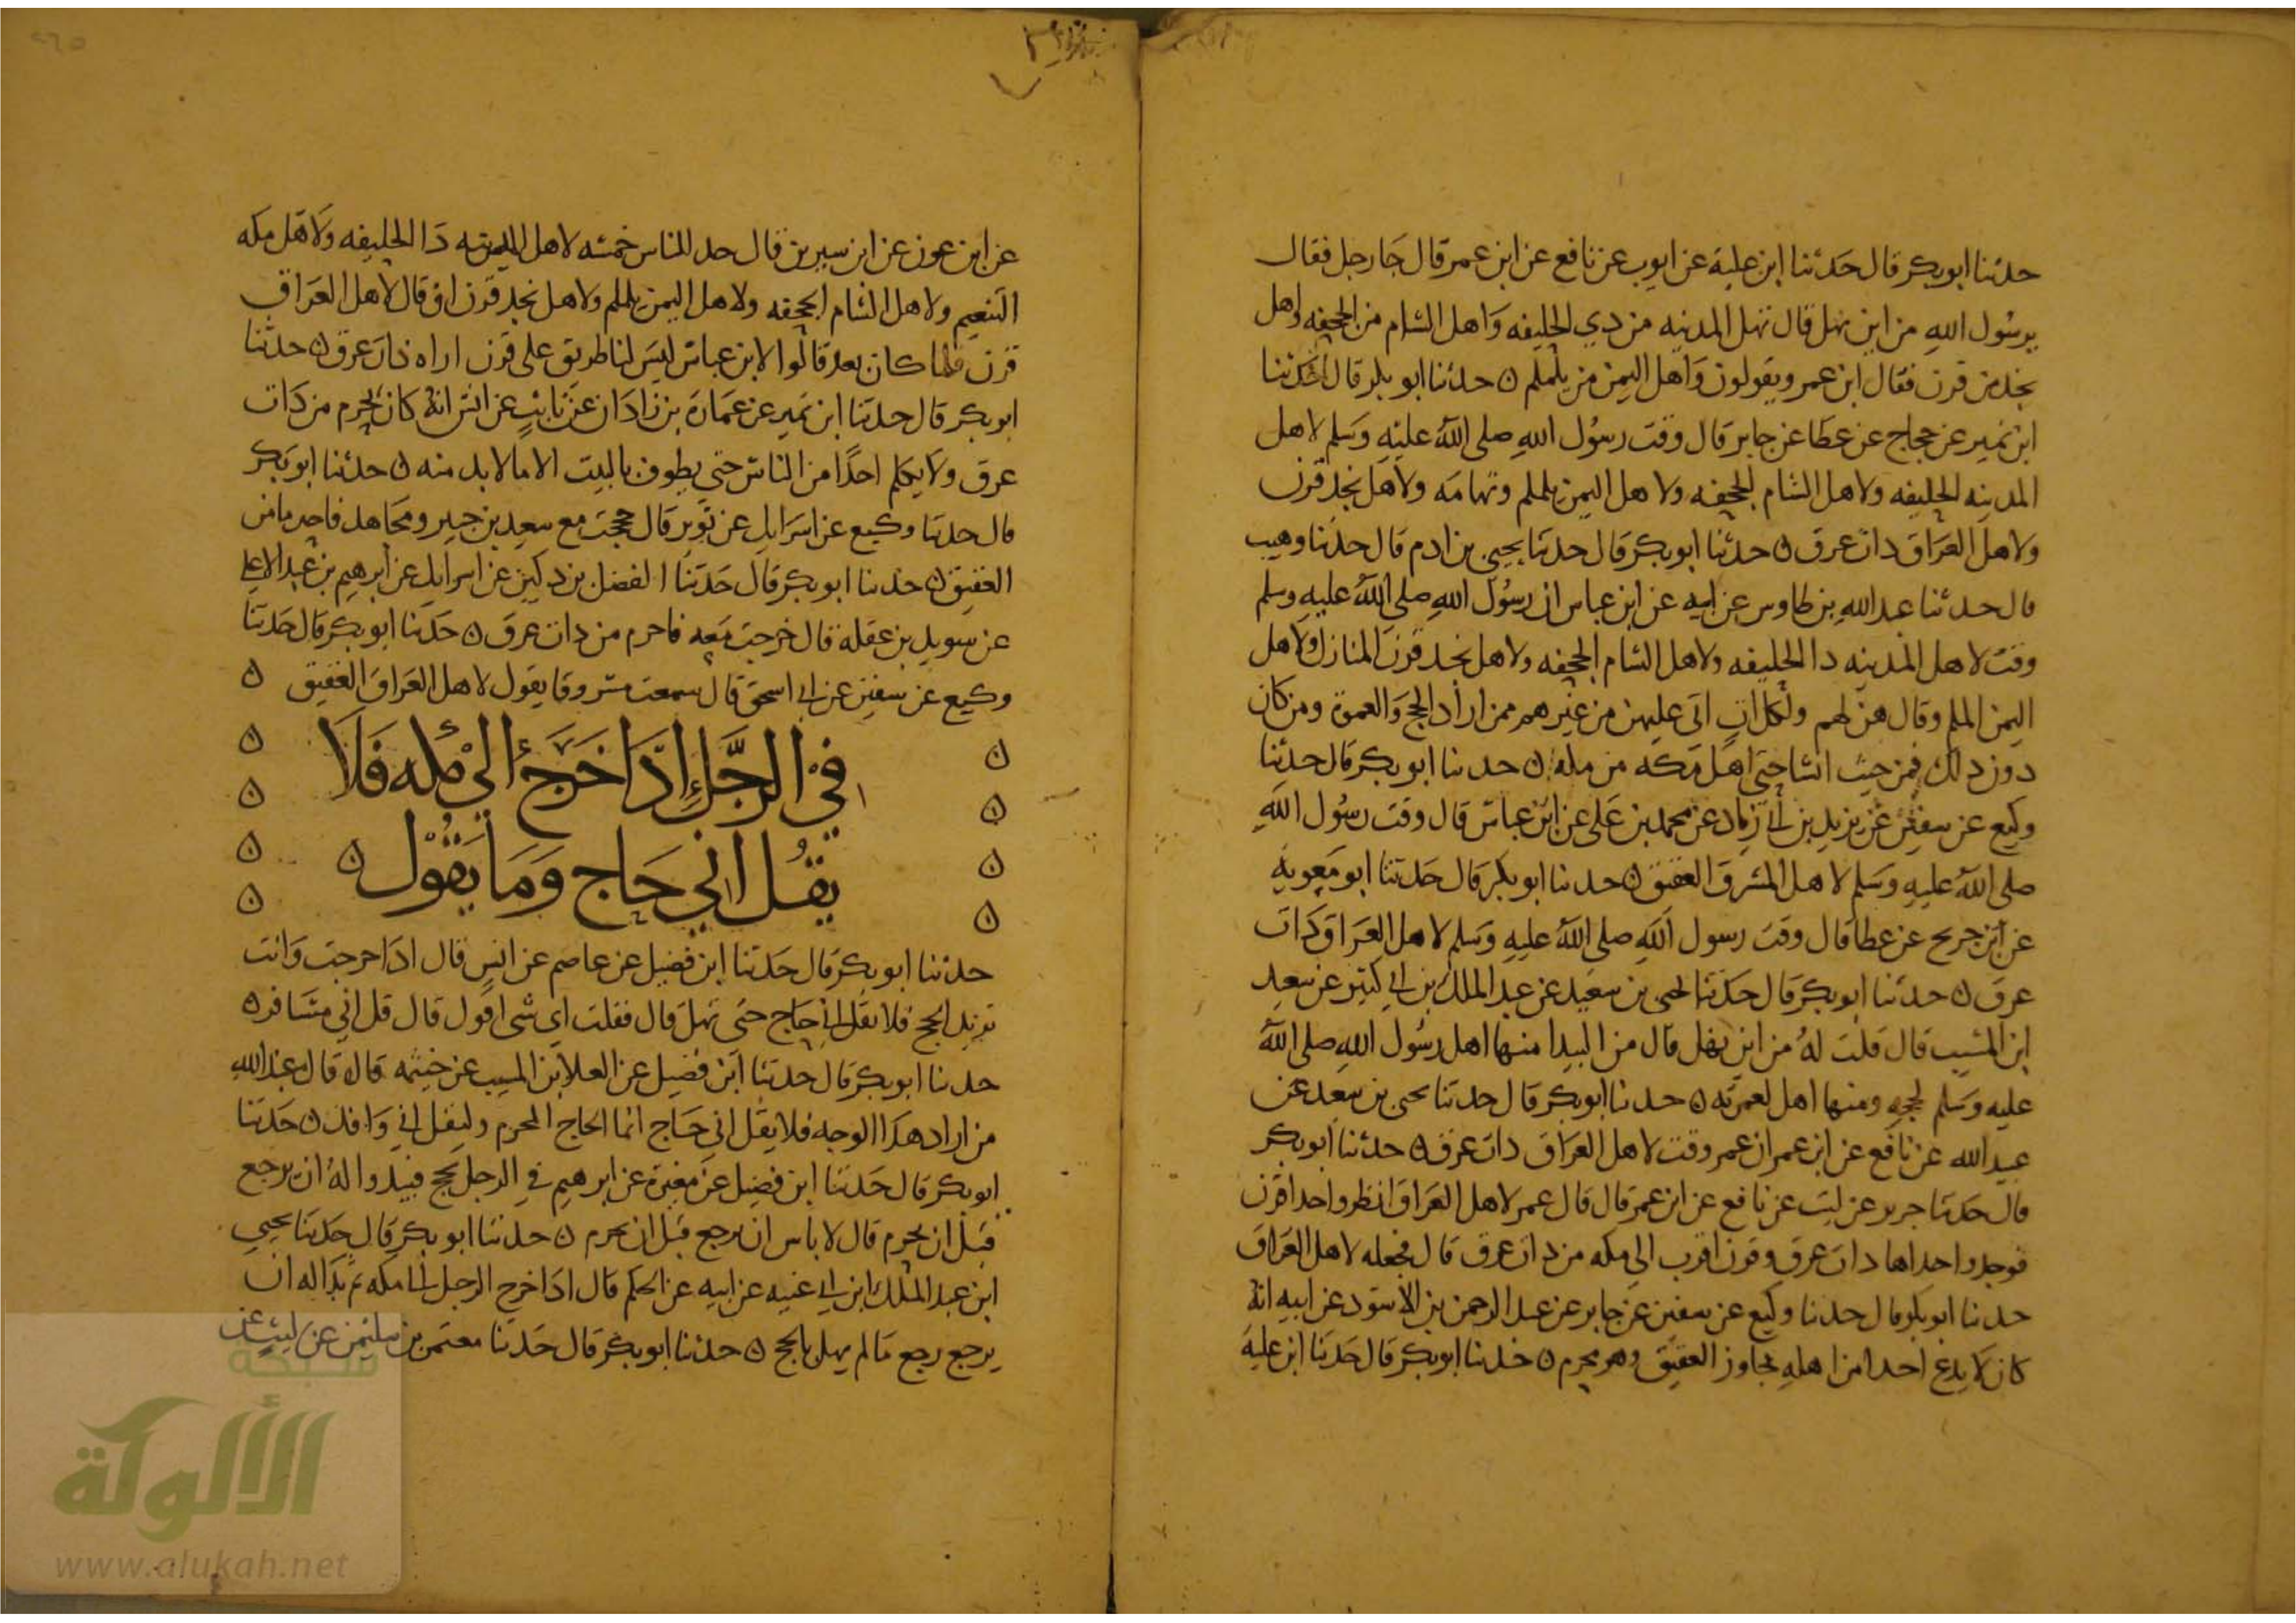 حدثنا ابو بكر قال حدثنا ابن علية عن ايوب عن نافع عن ابن عمر قال جا رجل فقال
يرسول الله من اين نهل قال تهل المدينه من ذي الحليفه واهل الشام من الجحفه واهل
نجد من قرن فقال ابن عمر ويقولون واهل اليمن من يلملم ن حدثنا ابو بكر قال حدثنا
ابن نمير عن حجاج عن عطا عن جابر قال وقت رسول الله صلى الله عليه وسلم لاهل
المدينه الحليفه ولاهل الشام الجحفه ولاهل اليمن يلملم وتهامه ولاهل نجد قرن
ولاهل العراق ذات عرق ن حدثنا ابو بكر قال حدثنا يحيى بن ادم قال حدثنا وهيب
قال حدثنا عبد الله بن طاوس عن ابيه عن ابن عباس ان رسول الله صلى الله عليه وسلم
وقت لاهل المدينه ذا الحليفه ولاهل الشام الجحفه ولاهل نجد قرن المنازل ولاهل
اليمن الملم وقال هن لهم ولكل ات اتى عليهن من غيرهم ممن اراد الحج والعمرة ومن كان
دون ذلك فمن حيث انشا حتى اهل مكه من مكه ن حدثنا ابو بكر قال حدثنا
وكيع عن سفين عن يزيد بن ابي زياد عن محمد بن علي عن ابن عباس قال وقت رسول الله
صلى الله عليه وسلم لاهل المشرق العقيق ن حدثنا ابو بكر قال حدثنا ابو معويه
عن ابن جريج عن عطا قال وقت رسول الله صلى الله عليه وسلم لاهل العراق ذات
عرق ن حدثنا ابو بكر قال حدثنا يحيى بن سعيد عن عبد الملك بن ابي كثير عن سعيد
ابن المسيب قال قلت له من اين يهل قال من البيدا منها اهل رسول الله صلى الله
عليه وسلم لحجه ومنها اهل لعمرته ن حدثنا ابو بكر قال حدثنا يحيى بن سعيد عن
عبيد الله عن نافع عن ابن عمر ان عمر وقت لاهل العراق ذات عرق ن حدثنا ابو بكر
قال حدثنا جرير عن ليث عن نافع عن ابن عمر قال قال عمر لاهل العراق انظروا حدا قرن
فوجدوا حداها ذات عرق وقرن اقرب الى مكه من ذات عرق قال فجعله لاهل العراق
حدثنا ابو بكر قال حدثنا وكيع عن سفين عن جابر عن عبد الرحمن بن الاسود عن ابيه انه
كان لا يدع احدا من اهله يجاوز العقيق وهو محرم ن حدثنا ابو بكر قال حدثنا ابن علية
عن ابن عون عن ابن سيرين قال حد للناس خمسه لاهل المدينه ذا الحليفه ولاهل مكه
التنعيم ولاهل الشام الجحفه ولاهل اليمن يلملم ولاهل نجد قرن او قال لاهل العراق
قرن فلما كان بعد قالوا لابن عباس ليس لنا طريق على قرن اراه ذات عرق ن حدثنا
ابو بكر قال حدثنا ابن نمير عن عمارة بن زاذان عن ثابت عن انس انه كان يحرم من ذات
عرق ولا يكلم احدا من الناس حتى يطوف بالبيت الا ما لا بد منه ن حدثنا ابو بكر
قال حدثنا وكيع عن اسرايل عن ثوير قال حججت مع سعيد بن جبير ومجاهد فاحرما من
العقيق ن حدثنا ابو بكر قال حدثنا الفضل بن دكين عن اسرايل عن ابرهيم بن عبد الاعلى
عن سويد بن غفلة قال خرجت معه فاحرم من ذات عرق ن حدثنا ابو بكر قال حدثنا
وكيع عن سفين عن ابي اسحق قال سمعت مسروقا يقول لاهل العراق العقيق ن
في الرجل اذا خرج الى مكه فلا
يقل اني حاج وما يقول ن
حدثنا ابو بكر قال حدثنا ابن فضيل عن عاصم عن انس قال اذا خرجت وانت
تريد الحج فلا تقل اني حاج حتى تهل قال فقلت اي شي اقول قال قل اني مسافر ن
حدثنا ابو بكر قال حدثنا ابن فضيل عن العلا بن المسيب عن خيثمه قال قال عبد الله
من اراد هذا الوجه فلا يقل اني حاج انما الحاج المحرم وليقل اني وافد ن حدثنا
ابو بكر قال حدثنا ابن فضيل عن مغيرة عن ابرهيم في الرجل يحج فيبدوا له ان يرجع
قبل ان يحرم قال لا باس ان يرجع قبل ان يحرم ن حدثنا ابو بكر قال حدثنا يحيى
ابن عبد الملك ابن ابي غنيه عن ابيه عن الحكم قال اذا خرج الرجل الى مكه ثم بدا له ان
يرجع رجع ما لم يهل بالحج ن حدثنا ابو بكر قال حدثنا معتمر بن سليمن عن ليث عن
شبكة
الألوكة
www.alukah.net